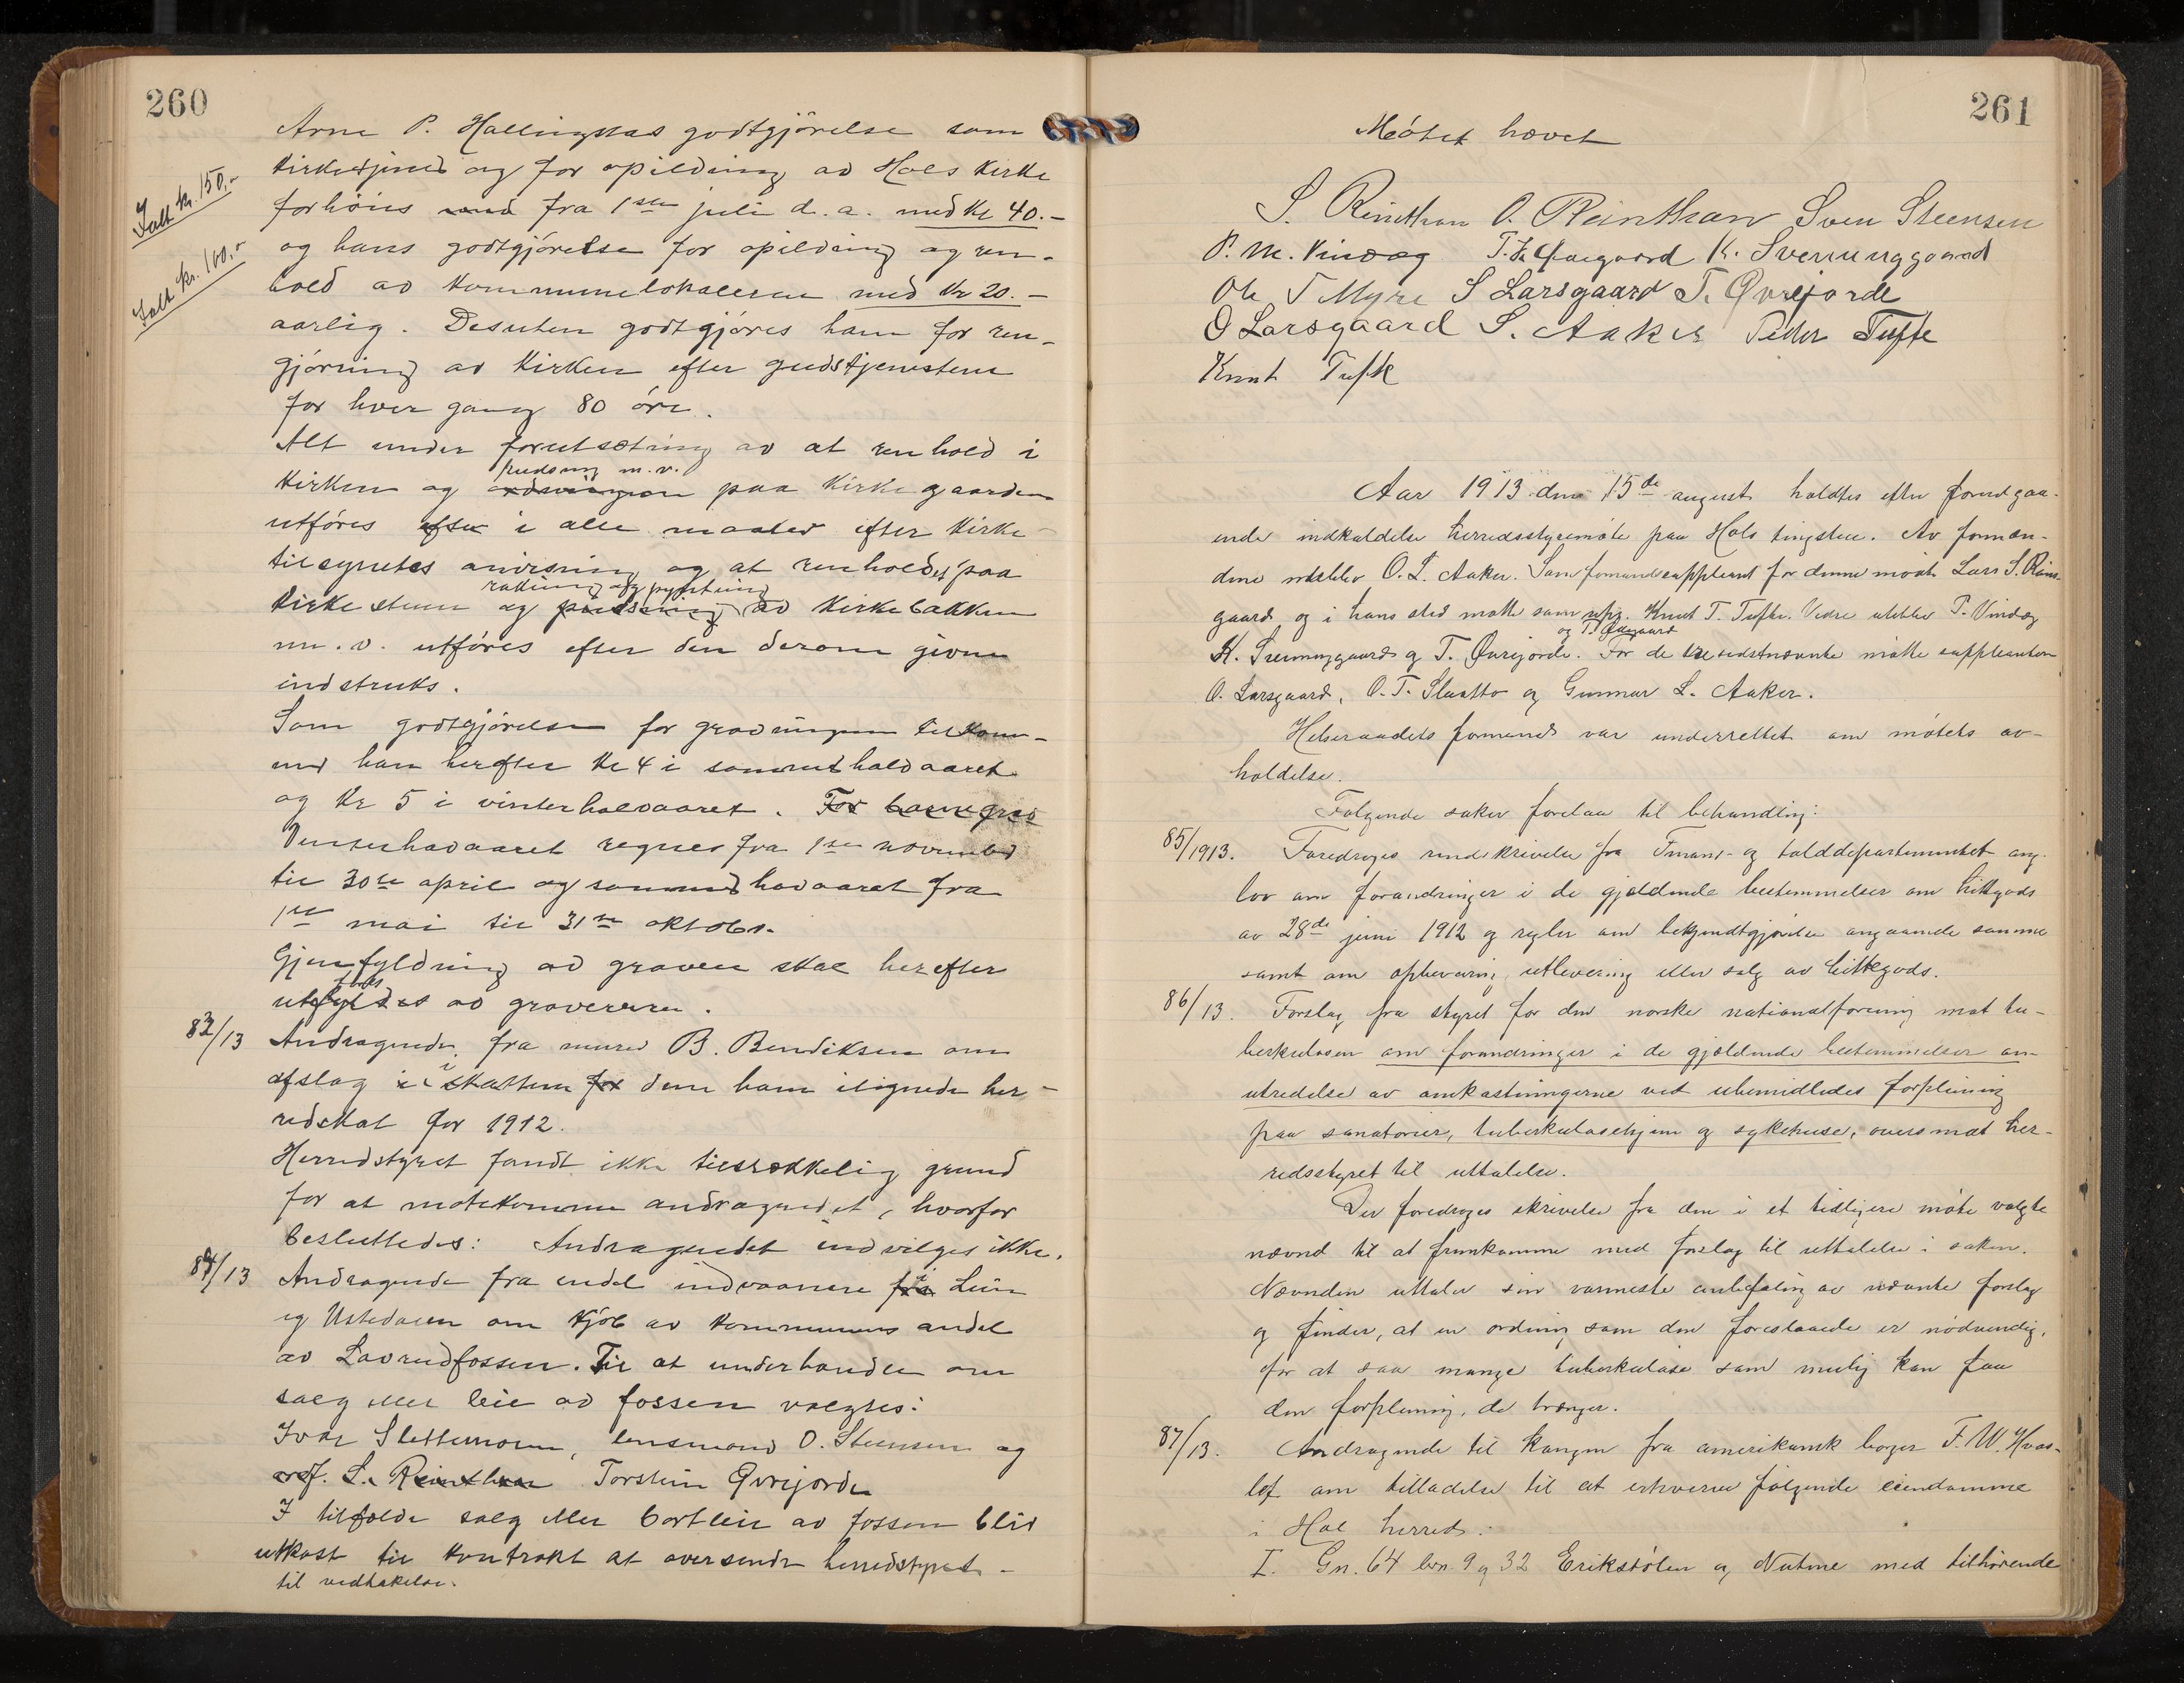 260
Arne P. Hallingstas godtgjörelse som
kirketjener og for opildning av Hols kirke
forhöies med fra 1ste juli d. a. med kr 40.-
Ialt kr. 150,-
og hans godtgjörelse for opildning og ren-
hold av kommunelokalerne med kr 20.-
Ialt kr. 100,-
aarlig. Desuten godtgjöres ham for ren-
gjöring av kirken efter gudstjenesterne
for hver gang 80 öre.
Alt under forutsætning av at renhold i
pudsning m.v.
kirken og paa kirkegaarden
utföres efter i alle maater efter kirke-
tilsynets anvisning og at renholdet paa
rakning og pyntning
kirkestuen og pudsning av kirkebakken
m.v. utföres efter den derom givne
instruks.
Som godtgjörelse for gravningen tilkom-
mer ham herefter kr 4 i sommerhalvaaret
og kr 5 i vinterhalvaaret. For barnegrav
Vinterhavaaret regnes fra 1ste november
til 30te april og sommerhavaaret fra
1ste mai til 31te oktober.
Gjenfyldning av graven skal herefter
utföres av graveren.
83/13 Andragende fra murer B. Bendiksen om
afslag i skatten for den ham ilignede her-
redskat for 1912.
Herredstyret fandt ikke tilstrækkelig grund
for at motekomme andragendet, hvorfor
besluttedes: Andragendet indvilges ikke.
84/13 Andragende fra endel indvaanere fra Lien
og Ustedalen om kjöb av kommunens andel
av Lavrudfossen. Til at underhandle om
salg eller leie av fossen valgtes:
Ivar Slettemoen, lensmand O. Steensen og
ordf. S. Reinthon Torstein Qvrejorde
I tilfælde salg eller bortleie av fossen blir
utkast til kontrakt at oversende herredstyret
til vedtakelse.
261
Mötet hævet
S. Rinthon O. Reinthon Sven Steensen
P. M. Vindeg T. K. Ødegaard K. Sverrunggaard
Ole T Myre S Larsgaard T. Qvrejorde
O Larsgaard S. Aaker Peder Tufte
Knut Tufte
Aar 1913 den 15de august holdtes efter forutgaa-
ende indkaldelse herredsstyremöte paa Hols tingstue. Av formæn-
dene uteblev O. L. Aaker. Som formandssuppleant for denne mödte Lars S. Reins-
gaard og i hans sted mötte som repr. Knut T. Tufte. Videre uteblev P. Vindeg
og T. Ødegaard
K. Sverrunggaard og T. Qvrejorde. For de tre sidstnævnte mötte suppleanten
O. Larsgaard, O. T. Slaatto og Gunnar L. Aaker.
Helseraadets formand var underrettet om mötets av-
holdelse.
Folgende saker forelaa til behandling:
85/1913. Foredroges rundskrivelse fra Finans- og tolddepartementet ang.
lov om forandringer i de gjældende bestemmelser om hittegods
av 28de juni 1912 og regler om bekjendtgjörelse angaaende samme
samt om opbevaring, utlevering eller salg av hittegods.
86/13. Forslag fra styret for den norske nationalforening mot tu-
berkulosen om forandringer i de gjældende bestemmelser om
utredelse av omkostningerne ved ubemidledes forpleining
paa sanatorier, tuberkulosehjem og sykehuse, oversendt her-
redsstyret til uttalelse.
Der foredroges skrivelse fra den i et tidligere möte valgte
nævnd til at fremkomme med forslag til uttalelse i saken.
Nævnden uttaler sin varmeste anbefaling av nævnte forslag
og finder, at en ordning som den foreslaaede er nödvendig,
for at saa mange tuberkulöse som mulig kan faa
den forpleining, de trænger.
87/13. Andragende til kongen fra amerikansk borger F. W. Hvos-
lef om tilladelse til at erhverve fölgende eiendomme
i Hol herred:
I. Gn. 64 bn. 9 og 32 Erikstölen og Nutene med tilhörende